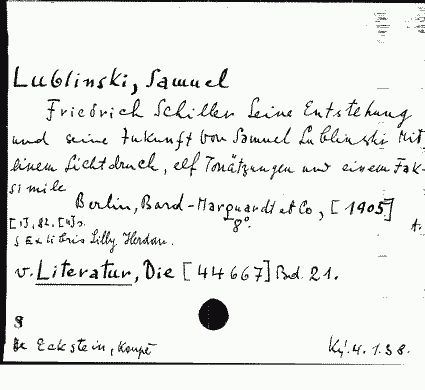 Lublinski, Samuel
Friedrich Schiller Seine Entstehung
und seine Zukunft Von Samuel Lublinski Mit
einem Lichtdruck, elf Tonätzungen und einem Fak-
simile
Berlin, Bard-Marquardt et Co, [1905]
8°.
[1], 82, [4] s.
Ex libris Lilly Herdan.
v. Literatur, Die [44667] Bd. 21.
8
Eckstein, Koupě
Ký. 4.1.38.